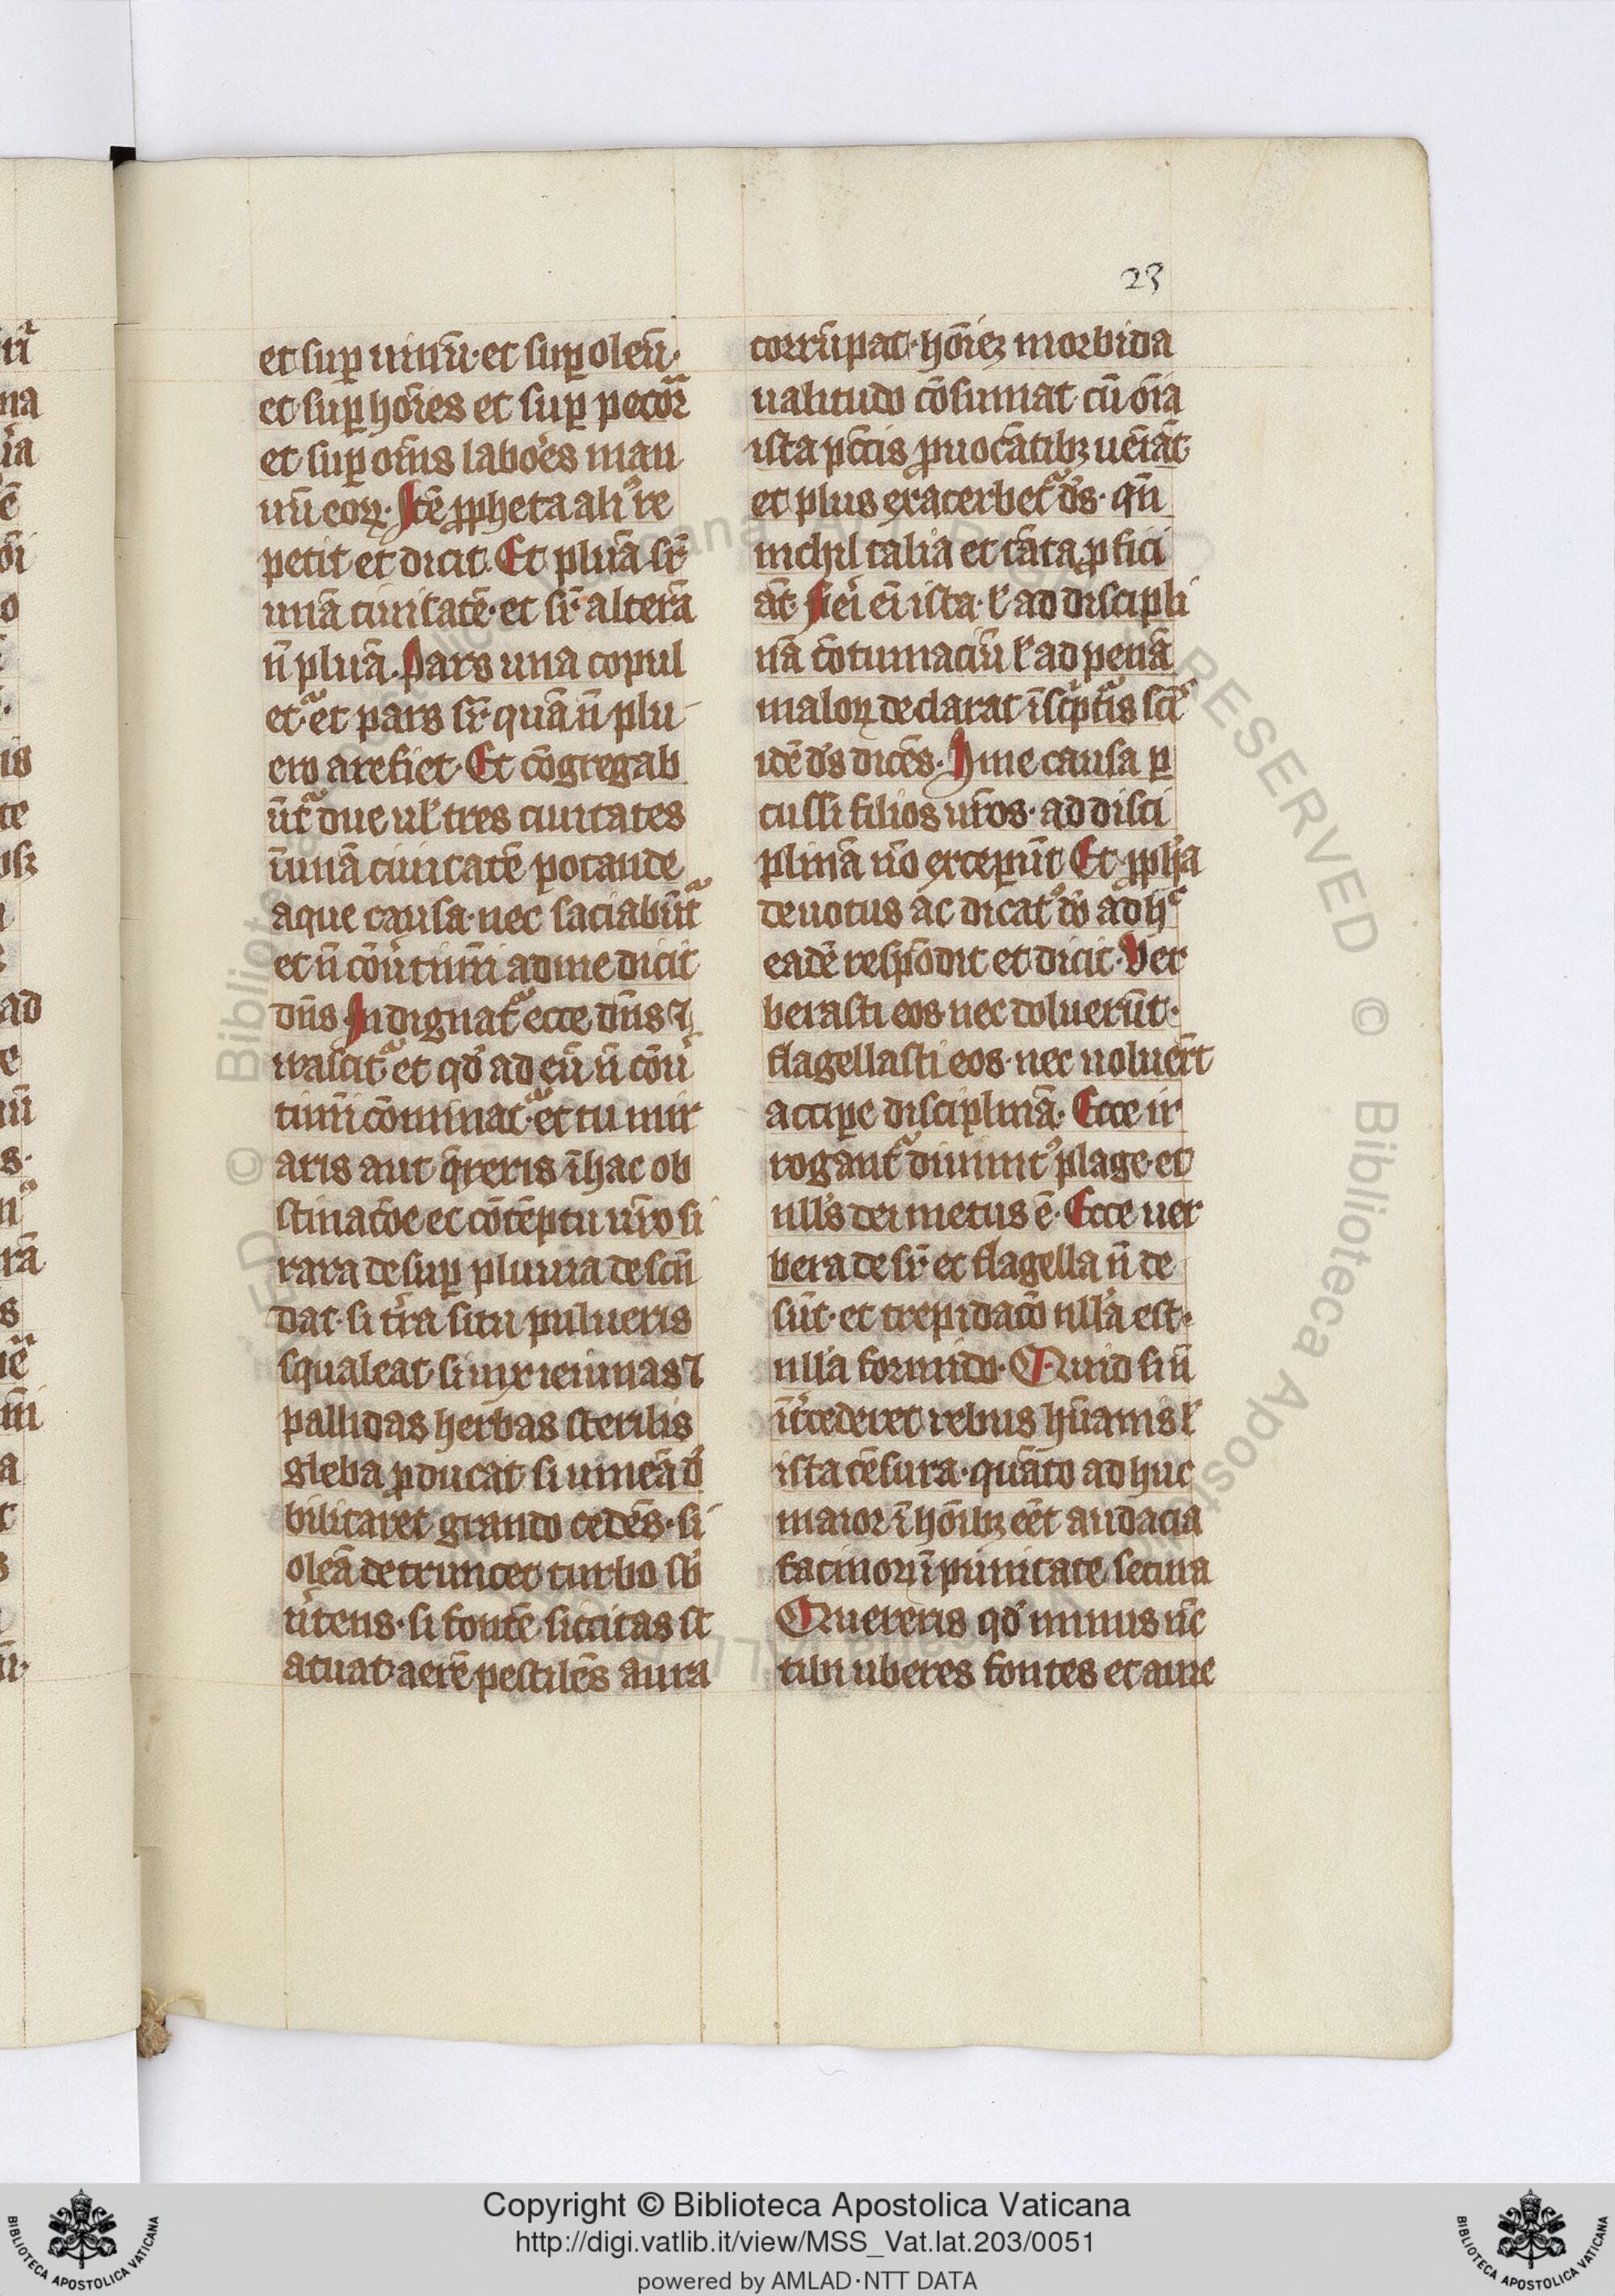 23
et sup̱ uinū· et sup̱ oleū·
et sup̱ hoı̄es et sup̱ pecorͣ
et sup̱ om̄s labo͛es man
uū eoꝝ· Itē ꝓpheta alı᷒ re
petit et dicit· Et pluā sr̄
unā ciuitatē· et sr̄ alterā
n̄ pluā· Pars una copul
etᷓ et pars sr̄ quā n̄ plu
ero arefiet· Et cōgregab
ūtᷓ due uł tres ciuitates
ī unā ciuitatē potande
aque causa· nec saciabūtᷓ
et n̄ cōu͛timı̄ ad me dicit
dn̄s Indignatᷓ ecce dn̄s ⁊
irascitᷓ et qd̓ ad eū n̄ cōu͛
timı̄ cōminatᷓ· et tu mir
aris aut q̄reris ī hac ob
stinatōe et cōtēptu ur̄o si
rara desup̱ pluuia descn̄
dat· si t͛ra situ pulueris
squaleat· si uix ieiunas ⁊
pallidas herbas sterilis
gleba ꝓducat· si uineā d̓
bilitaret grando cedēs· si
oleā detruncet turbo sb̓
u͛tens· si fontē siccitas st
atuat· aerē pestilēs aura
corrūpat· hoı̄eꝫ morbida
ualitudo cōsumat· cū oı̄a
ista pc̄cis ꝓuocātibꝫ ueı̄āt
et plus exacerbetᷓ ds̄· qn̄
nichil talia et tāta ꝓfici
āt· Fie͛i eı̄ ista· ł ad discipli
nā cōtumaciū ł ad penā
maloꝝ declarat ī sc͛ptᷓis sc̄ͥ
idē ds̄ dicēs· Sine causa p̱
cussi filios ur̄os· ad disci
plinā n̄o excep̱ūt Et ꝓph̓a
deuotus ac dicat᷒ dō ad hͨ
eadē respōdit et dicit· Ver
berasti eos nec doluerūt·
flagellasti eos· nec uoluer̄t
accip̱e disciplinā· Ecce ir
rogantᷓ diuinit᷒ plage· et
ull̓s dei metus ē· Ecce uer
bera de sr̄ et flagella n̄ de
sūt· et trepidatō ull̓a est·
nulla formido· Quid si n̄
īt͛cederet rebus hūanis ł
ista cēsura· quāto ad huc
maior ī hoı̄ibꝫ eēt audacia
facinoꝝ īpunitate secura
Quereris qd̓ minus nc̄
tibi uberes fontes et aure
Copyright © Biblioteca Apostolica Vaticana
http://digi.vatlib.it/view/MSS_Vat.lat.203/0051
powered by AMLAD·NTT DATA
BIBLIOTECA APOSTOLICA VATICANA
BIBLIOTECA APOSTOLICA VATICANA